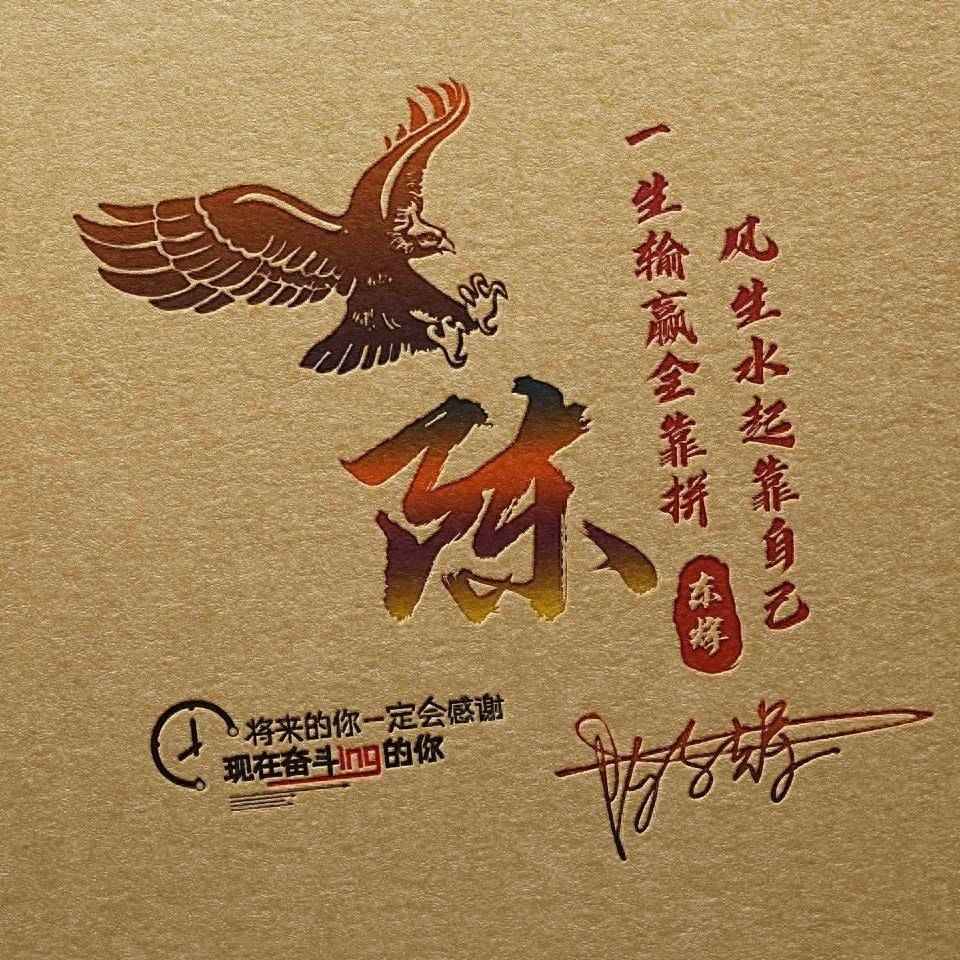 陈
风生水起靠自己
一生输赢全靠拼
东辉
将来的你一定会感谢
现在奋斗ing的你
陈东辉